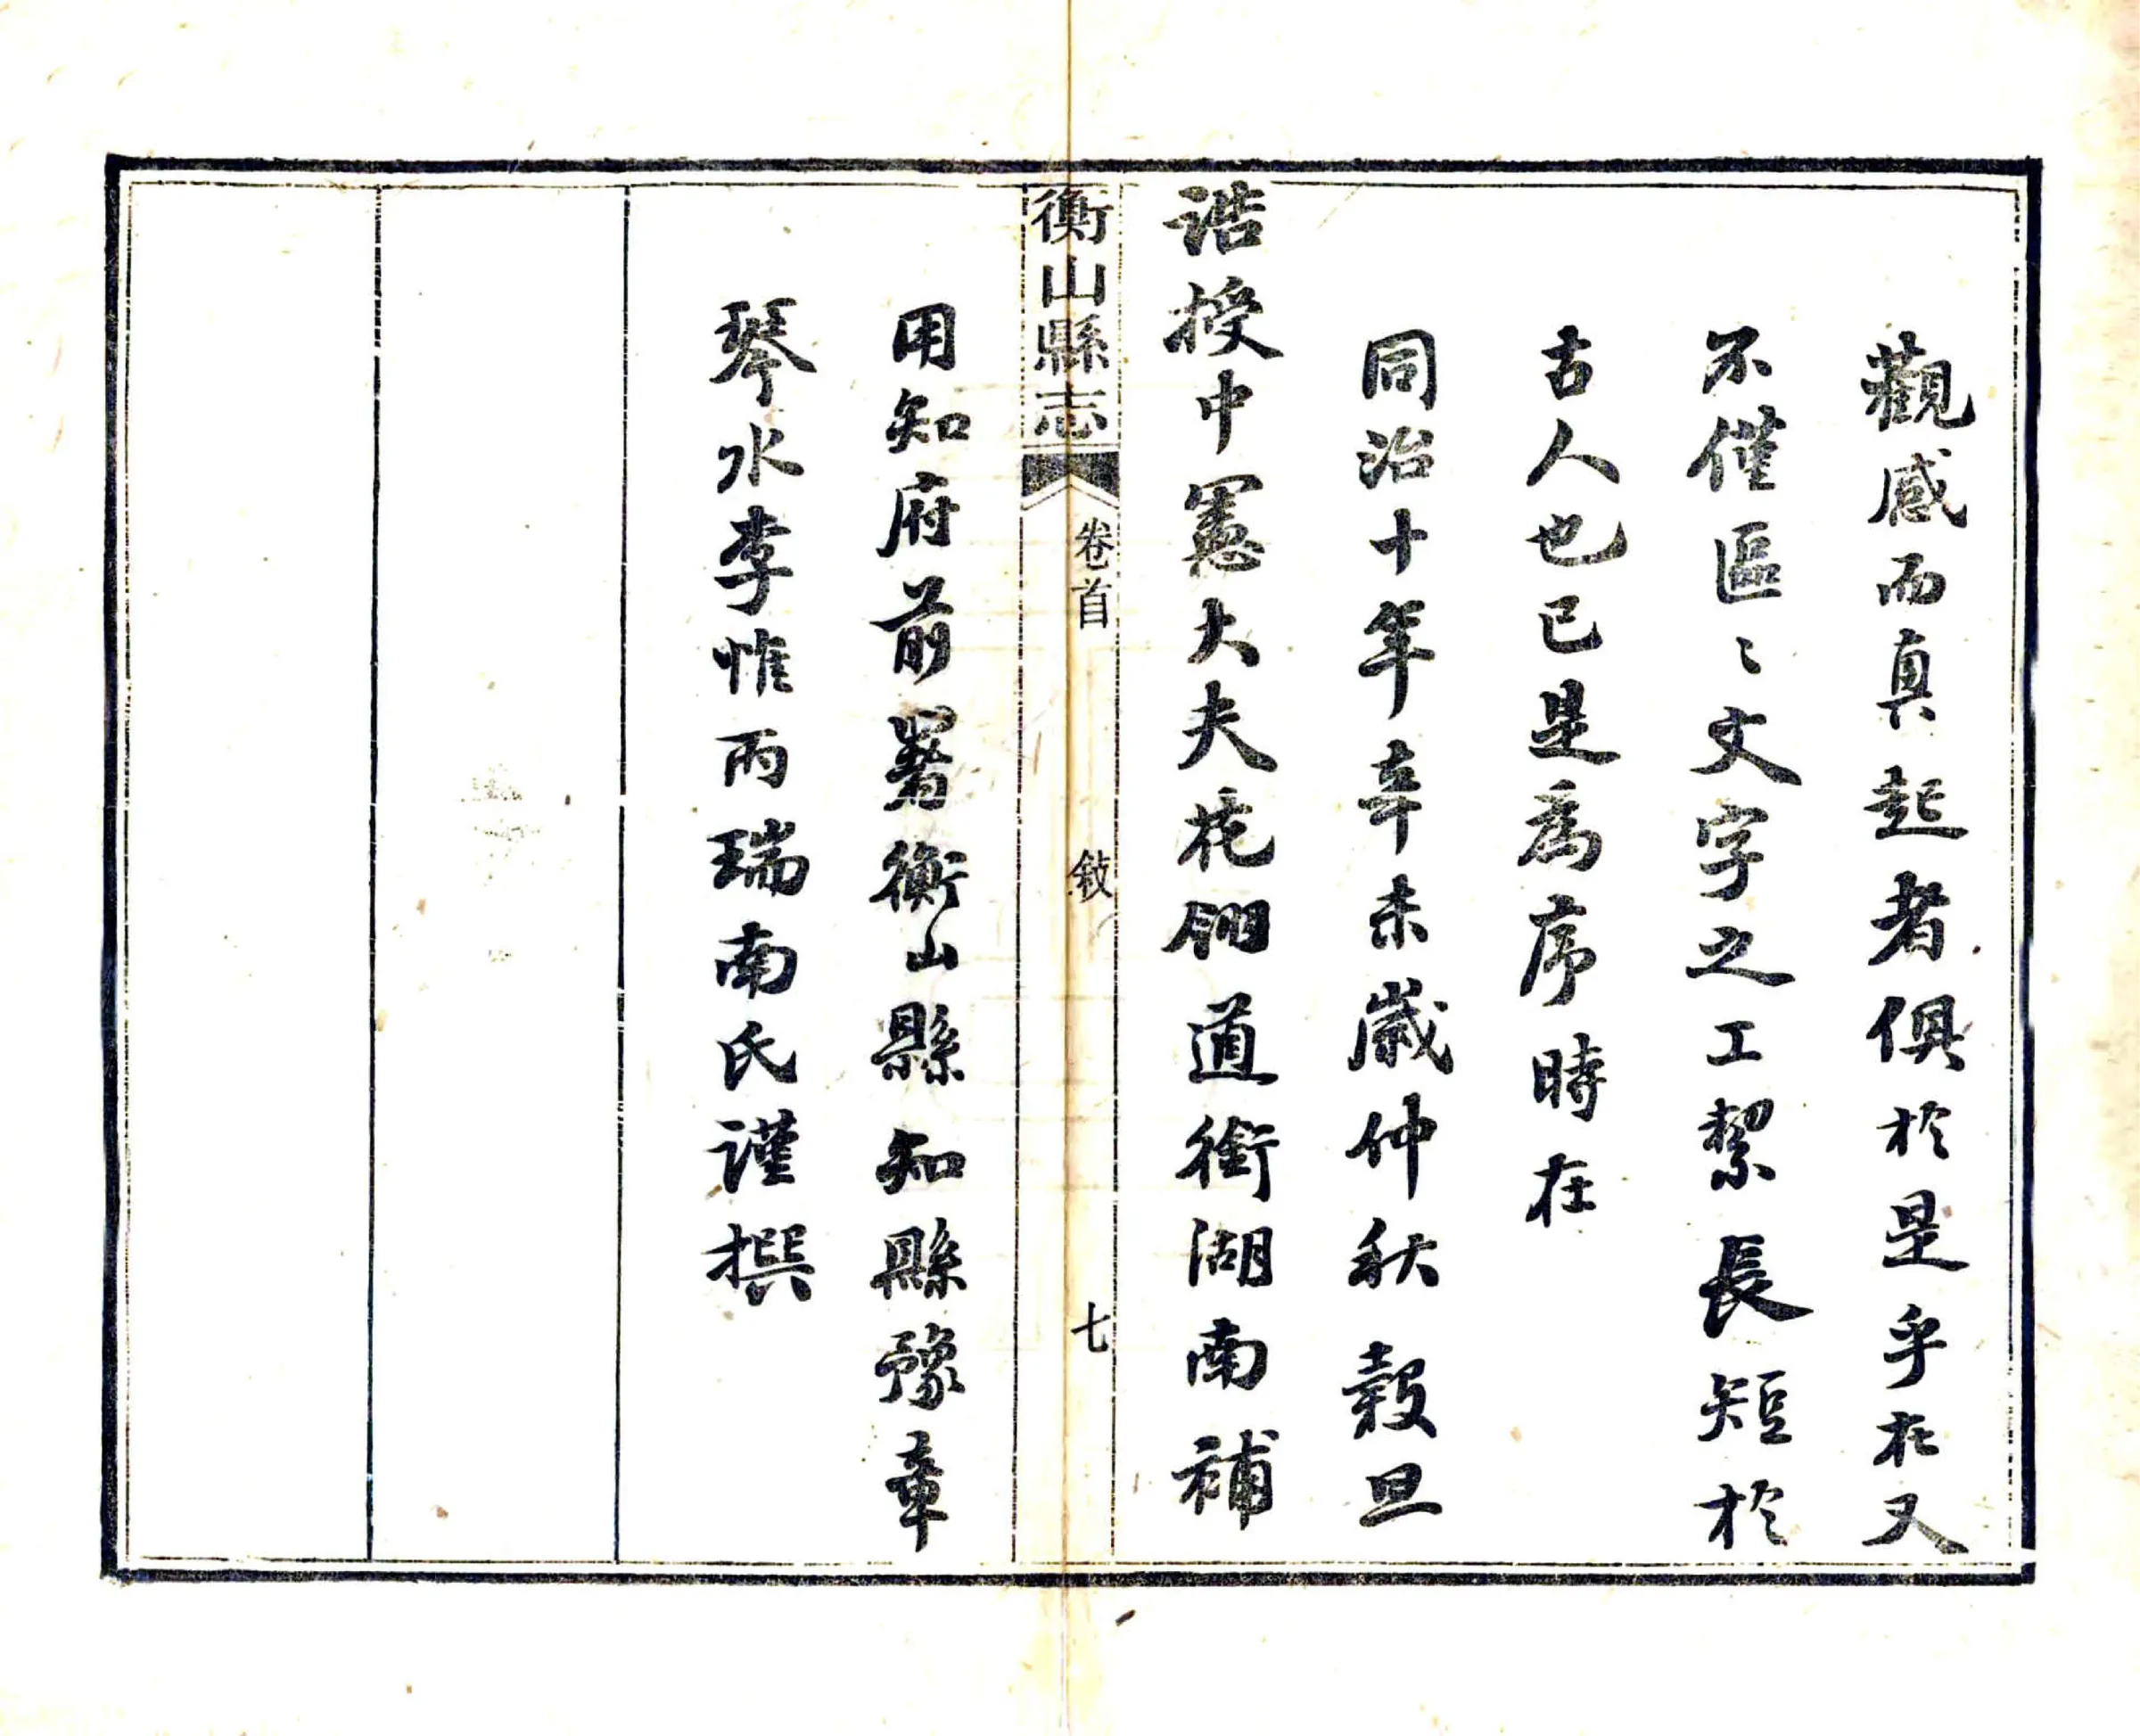 觀感而真起者俱於是乎在又
不僅區〻文字之工絜長短於
古人也已是爲序時在
同治十年辛未歲仲秋穀旦
誥授中憲大夫花翎道銜湖南補
衡山縣志 卷首 敘 七
用知府前署衡山縣知縣豫章
琴水李惟丙瑞南氏謹撰